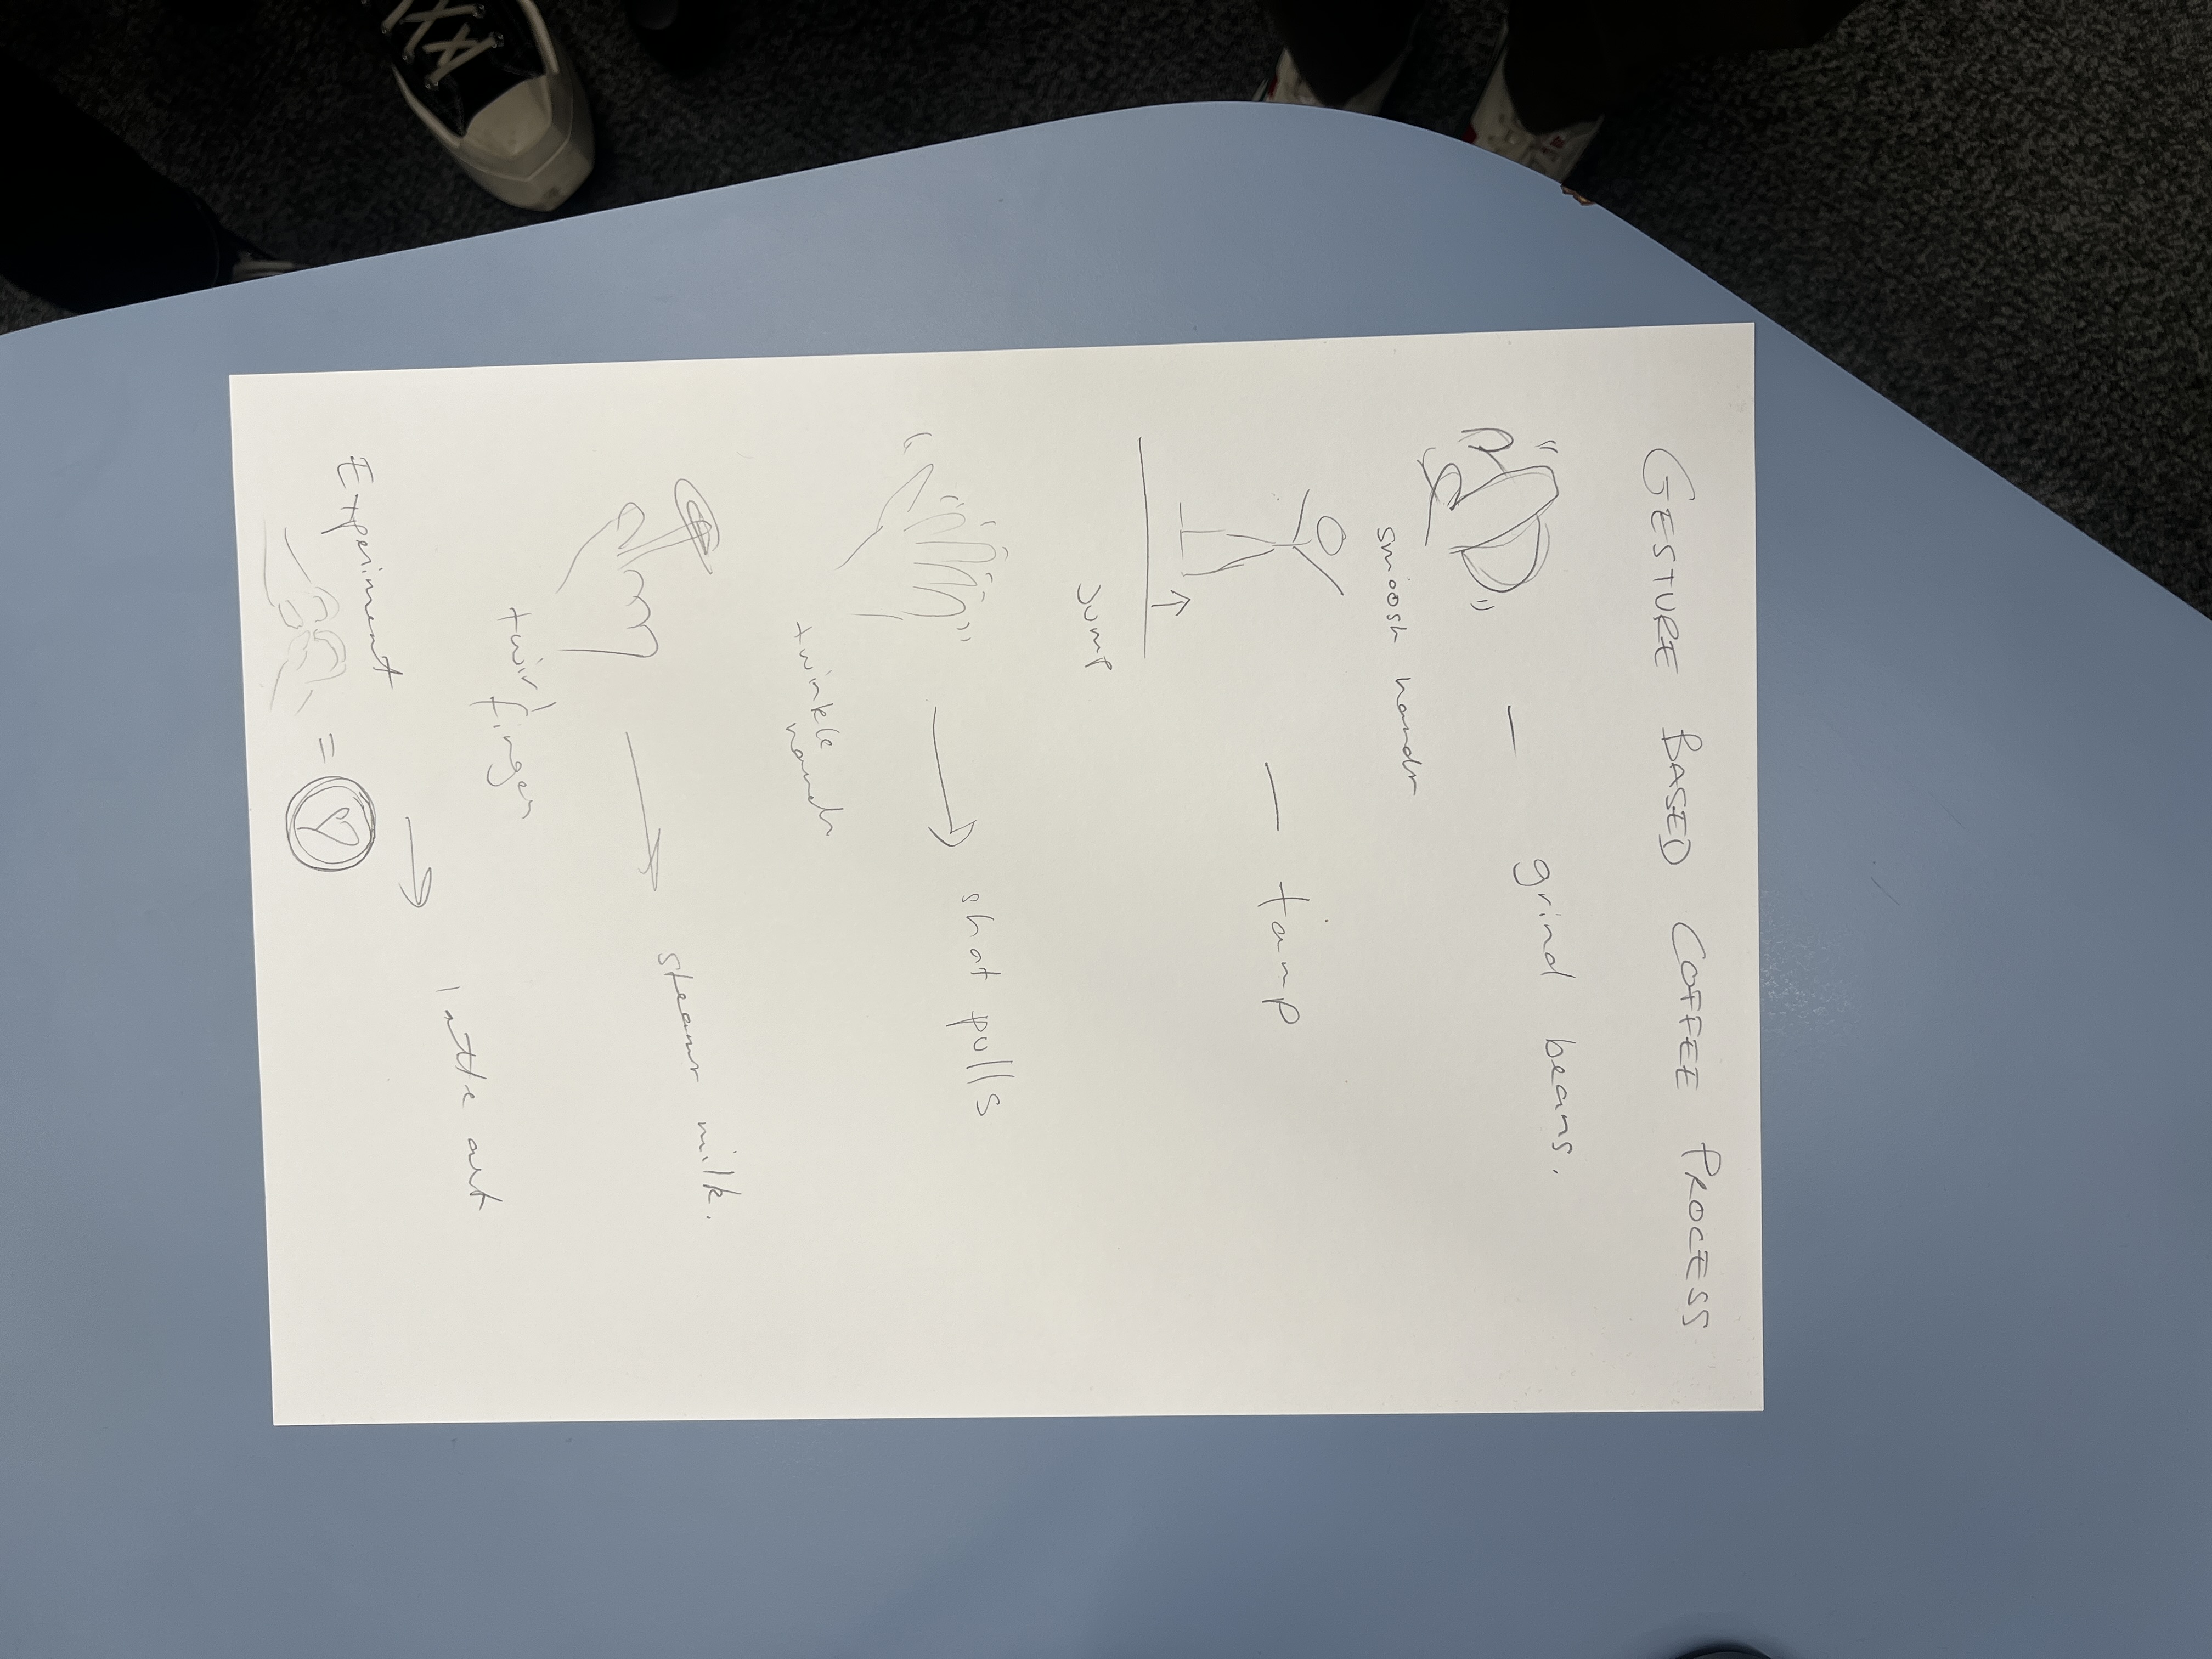 GESTURE BASED COFFEE PROCESS
grind beans.
smoosh hands
tamp
Jump
shot pulls
twinkle
hands
steam milk.
twirl
finger
latte art
Experiment
=